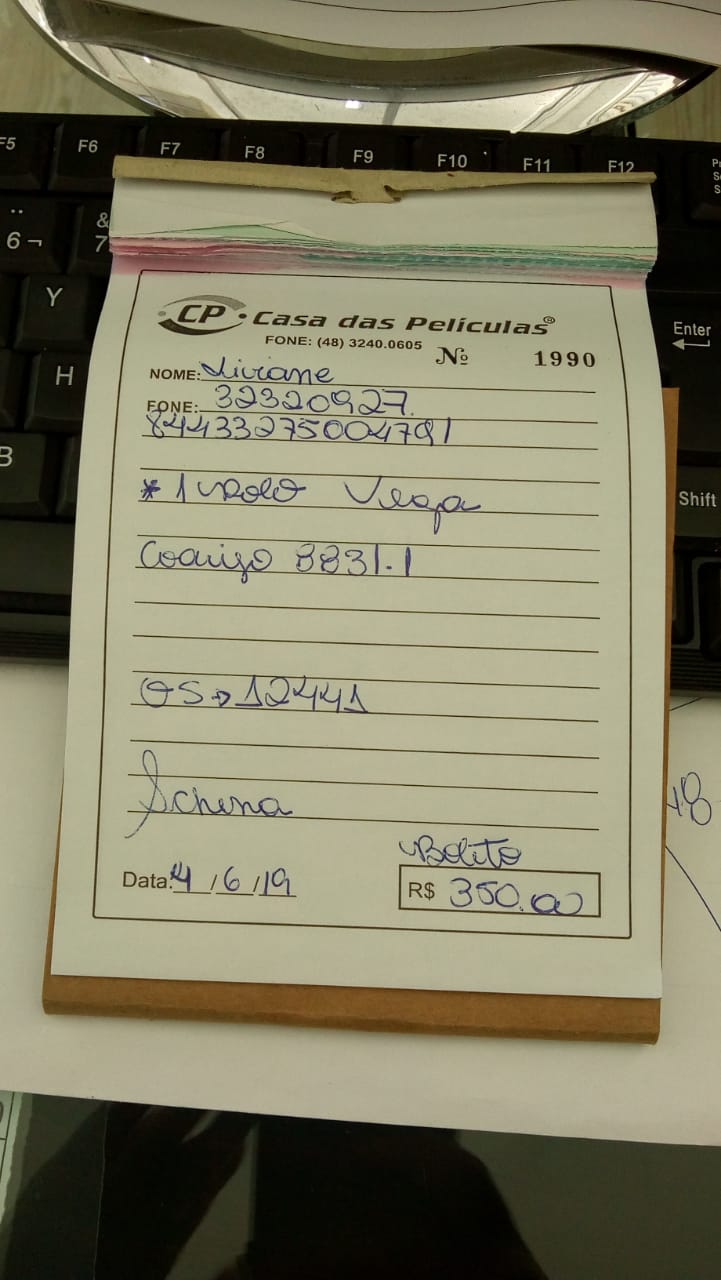 F5 F6 F7 F8 F9 F10 F11 F12
6 ¬ & 7
Y
H
B
Enter
Shift
CP Casa das Películas®
FONE: (48) 3240.0605
Nº 1990
NOME: Liviane
FONE: 32320927.
84433275004791
* 1 rolo Vega
Codigo 8831.1
OS → 12441
Schena
Boleto
Data: 4/6/19
R$ 350.00
+8